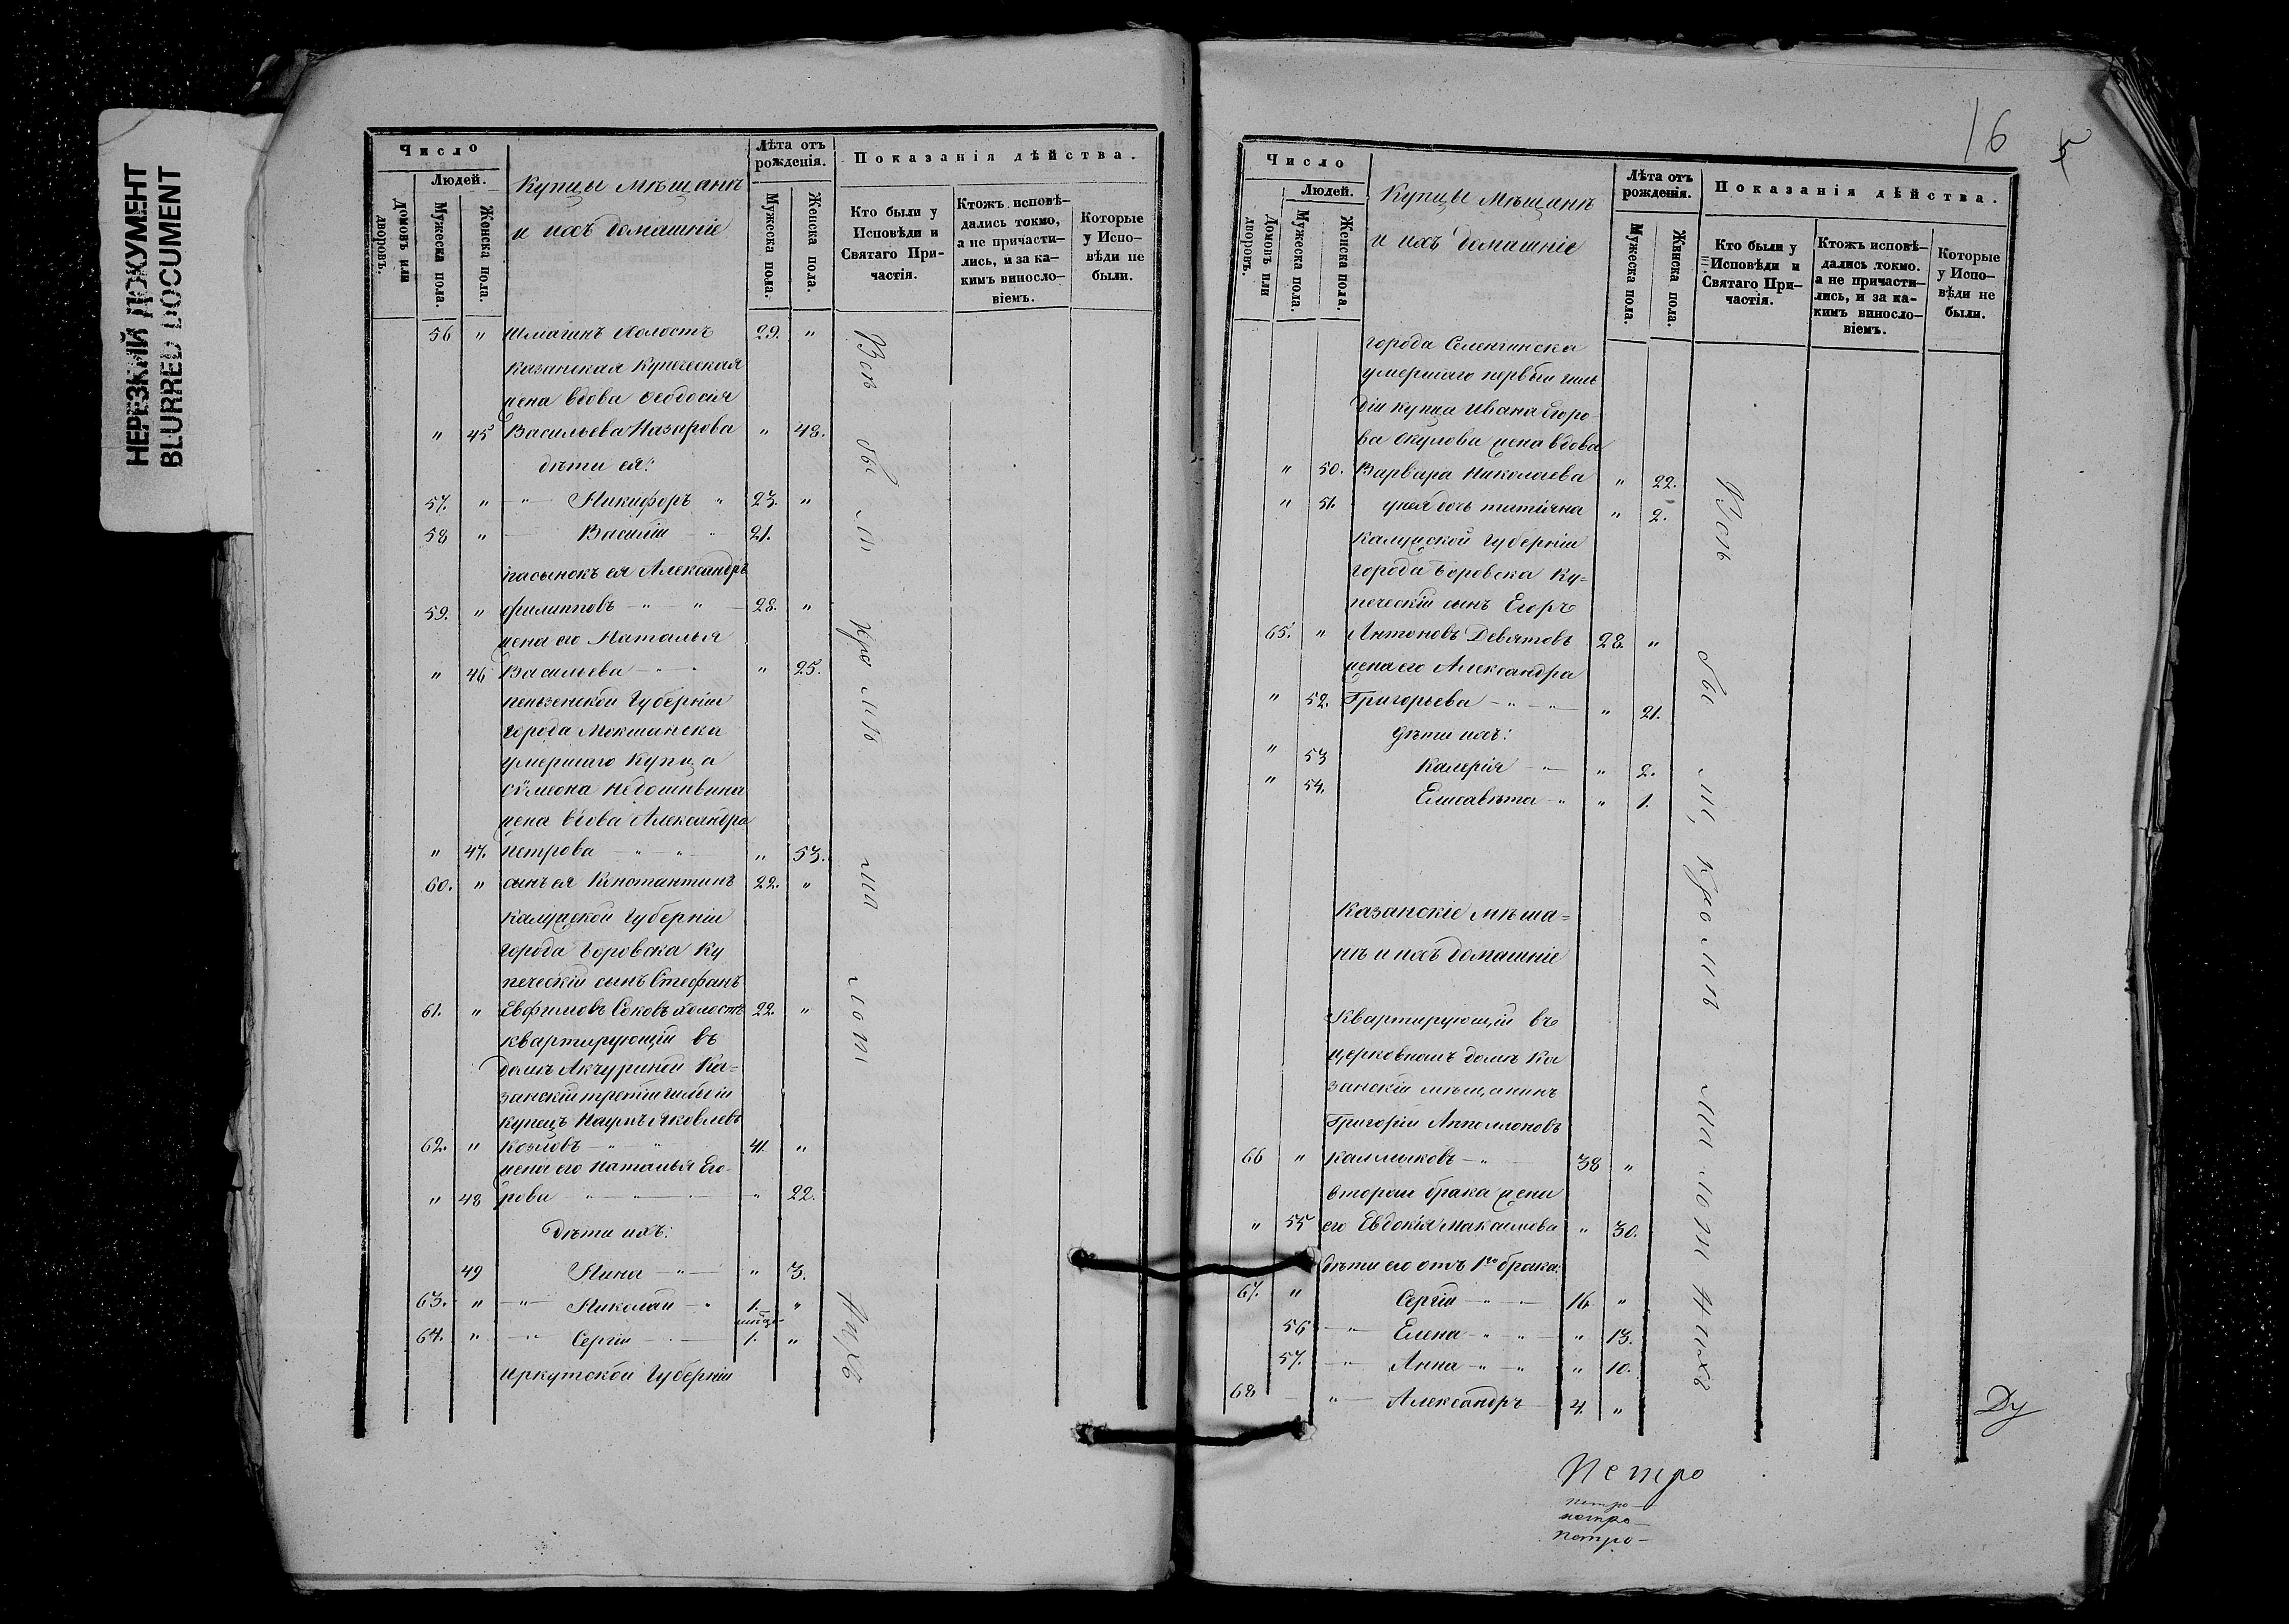 НЕРЕЗКИЙ ДОКУМЕНТ
BLURRED DOCUMENT
Число
Людей.
Домовъ или дворовъ.
Мужеска пола.
Женска пола.
Купцы мѣщанѣ
и ихъ домашніе
Лѣта отъ рожденія.
Мужеска пола.
Женска пола.
Показанія дѣйства.
Кто были у Исповѣди и Святаго При-частія.
Ктожъ исповѣ-дались токмо, а не причасти-лись, и за ка-кимъ винословіемъ.
Которые у Испо-вѣди не были.
56 " Холостъ 29. "
Казанская Купеческая
жена вдова Ѳеодосія
" 45 Васильева Назирова " 48.
дѣти ея:
57. " — " — Никифоръ " 23. "
58 " — Василій — " 21.
пасынокъ ея Александръ
59. " Филипповъ — " " — 28. "
жена его Наталья
" 46 Васильева — " — " 25.
пензенской Губерніи
города Мокшанска
умершаго Купца
Сѵмеона Недошивина
жена вдова Александра
" 47. петрова — " — " — " 53.
60. " сынъ ея Константинъ 22. "
Калужской Губерніи
города Боровска Ку
печескій сынъ Стефанъ
61. " Евфимовъ Соковъ холостъ 22. "
квартирующій въ
домѣ Акчуриной Ка=
занскій третій гильдіи
купецъ Наумъ Яковлевъ
62. " Козловъ — " " 41 "
жена его Наталья Его-
" 48 рова — " — " — " 22.
Дѣти ихъ:
49 Нина — " — " 3.
63. " — " — Николай — " 1. "
64. " — " Сергій — " — 1. "
Иркутской Губерніи
Всѣ бы ли кро мѣ ма лот нихъ
16
5
Число
Людей.
Домовъ или дворовъ.
Мужеска пола.
Женска пола.
Купцы Мѣщанѣ
и ихъ домашніе
Лѣта отъ рожденія.
Мужеска пола.
Женска пола.
Показанія дѣйства.
Кто были у Исповѣди и Святаго При-частія.
Ктожъ исповѣ-дались токмо. а не причасти-лись, и за ка-кимъ винословіемъ.
Которые у Испо-вѣди не были.
города Селенгинска
умершаго первый гиль
діи купца Ивана Егоро-
ва Окулова жена вдова
" 50. Варвара Николаева " 22.
" 51. " 2.
Калужской Губерніи
города Боровска Ку=
печескій сынъ Егоръ
65. " Антоновъ Девятовъ 28. "
жена его Александра
" 52. Григорьева — " — " — " 21.
Дѣти ихъ:
" 53 Калерія — " — " 2.
" 54. Елисавета — " " 1.
Казанскіе мѣща=
нѣ и ихъ домашніе
Квартирующій въ
церковномъ домѣ Ка
занскій мѣщанинъ
Григорій Апполлоновъ
66 " Калмыковъ — " — 38 "
вторый брака жена
" 55 его Евдокія Максимова " 30.
дѣти его отъ 1го брака:
67. " Сергій — " — 16 "
56 — " — Елена — " — " — " 13.
57. — " — Анна — " — " " 10.
68 — " — Александръ — 4. "
Всѣ бы ли, кро мѣ ма лот нихъ
Ду
Петро
петро—
петро—
петро—